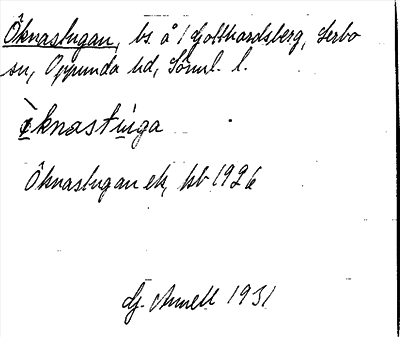 Öknastugan, bs. å 1 Gotthardsberg, Lerbo
sn, Oppunda hd, Söml. l.
ö̀knastu̇ga
Öknastugan ek, kb 1926
G. Annell 1931